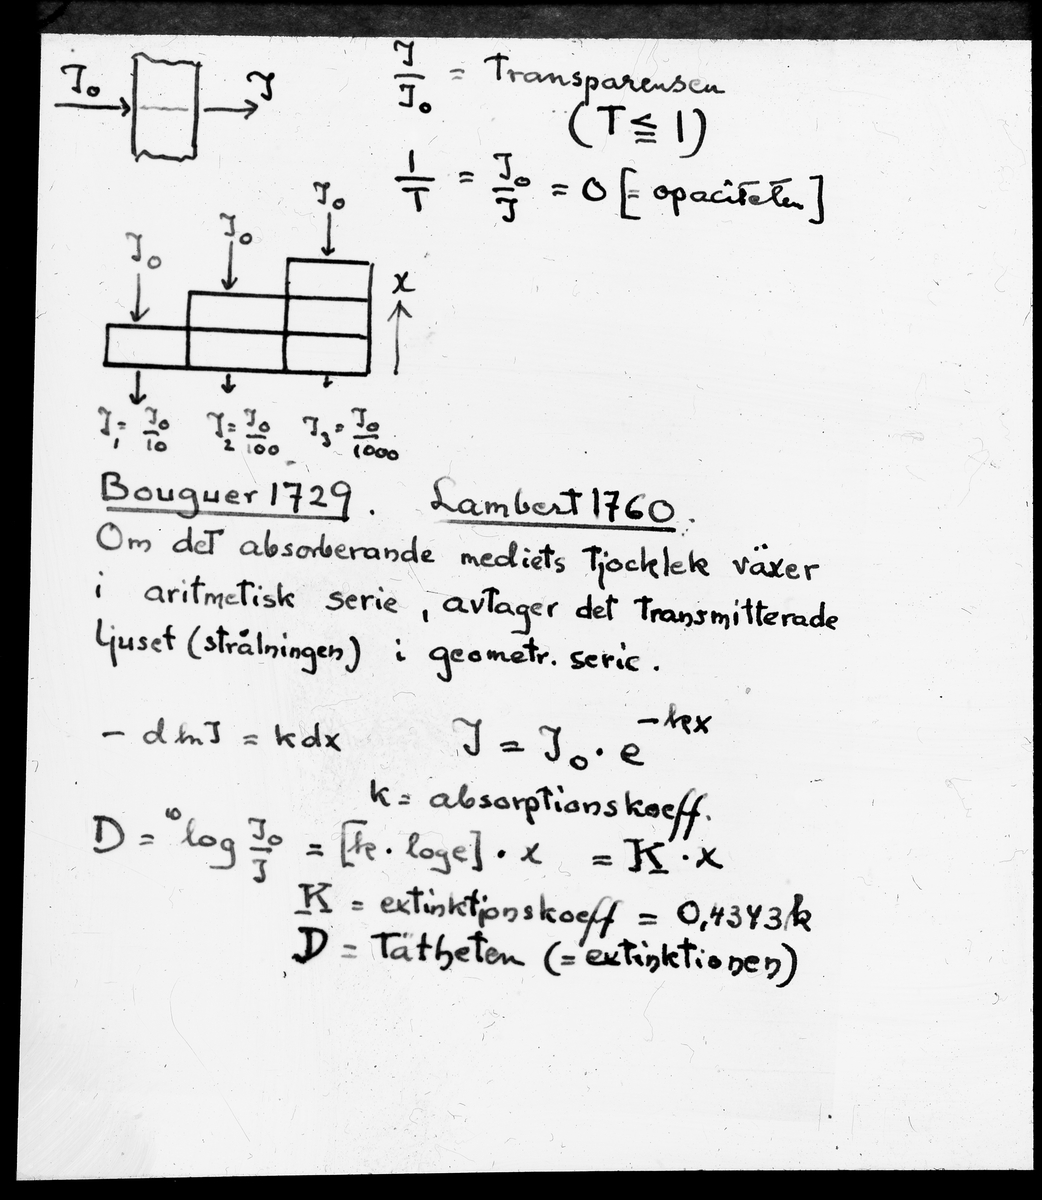 J₀ J
J/J₀ = Transparensen
(T ≦ 1)
1/T = J₀/J = O [= opaciteten]
J₀ J₀ J₀
x
J₁ = J₀/10 J₂ = J₀/100 J₃ = J₀/1000
Bouguer 1729. Lambert 1760.
Om det absorberande mediets tjocklek växer
i aritmetisk serie, avtager det transmitterade
ljuset (strålningen) i geometr. serie.
− d ln J = k dx J = J₀ · e^(−kx)
k = absorptionskoeff.
D = ¹⁰log J₀/J = [k · log e] · x = K · x
K = extinktjonskoeff = 0,4343 k
D = Tätheten (= extinktionen)